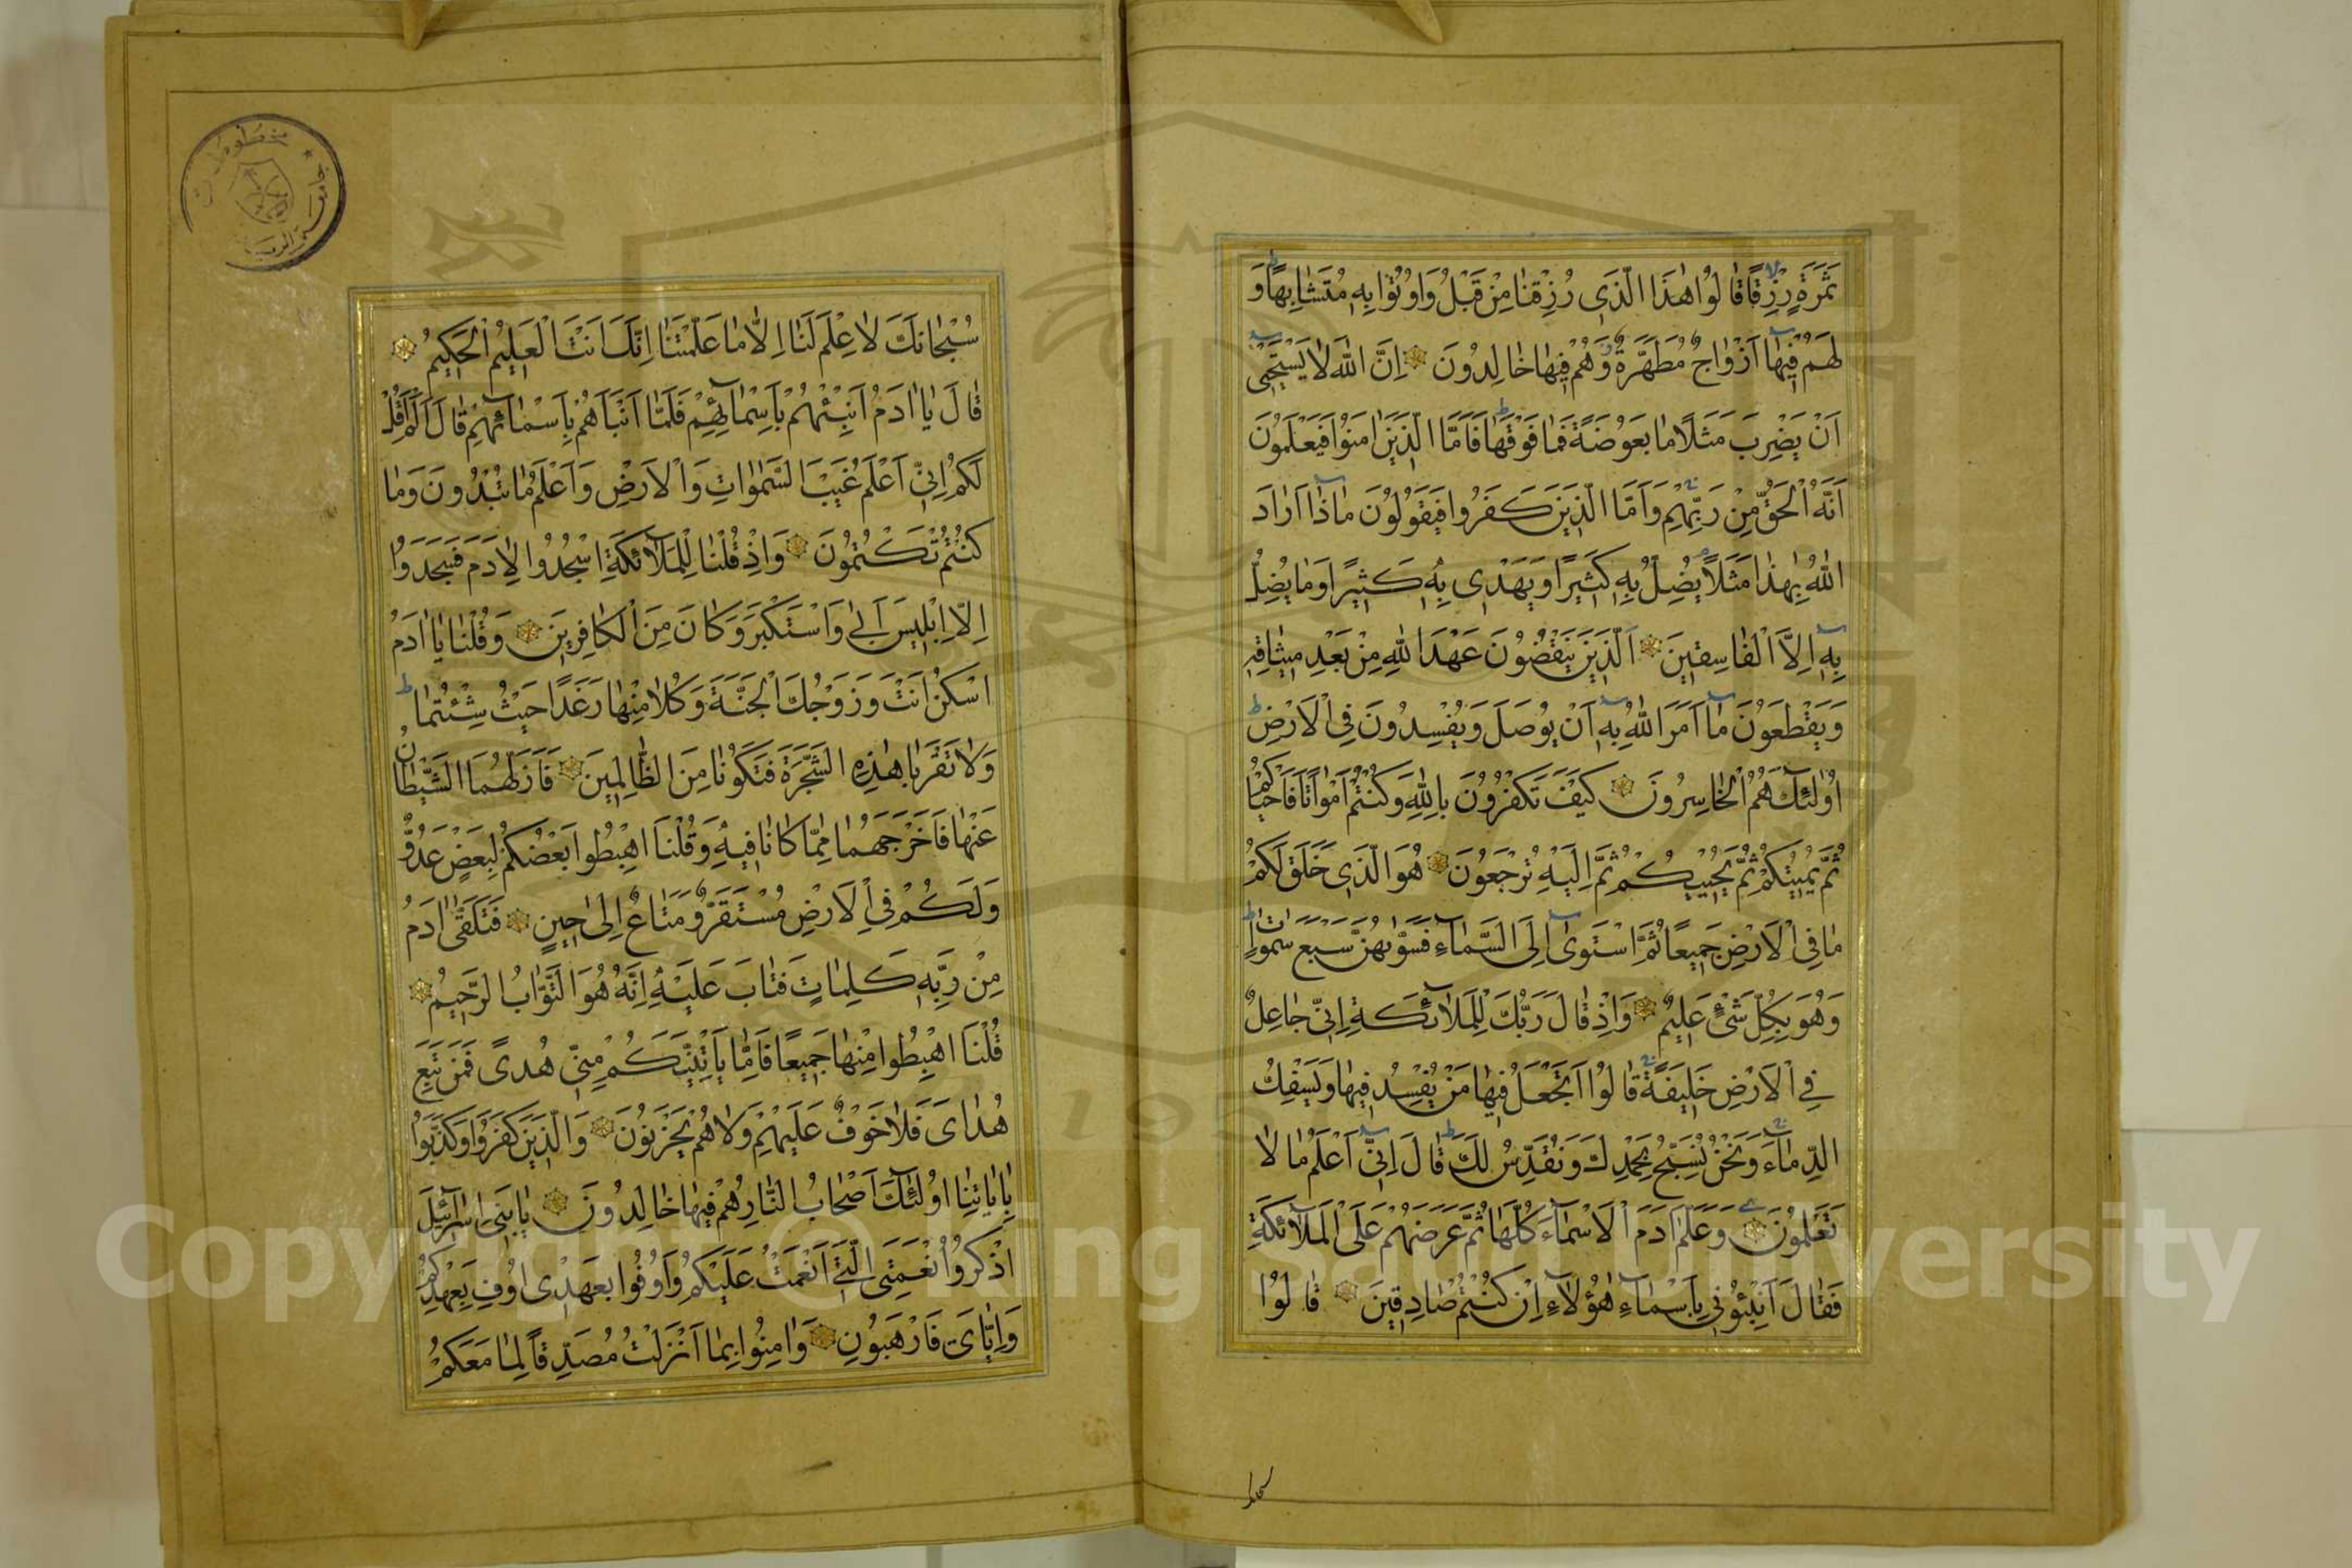 ثَمَرَةٍ رِزْقًا قَالُوا هٰذَا الَّذِى رُزِقْنَا مِنْ قَبْلُ وَاُوتُوا بِهِ مُتَشَابِهًا وَ
لَهُمْ فِيهَا اَزْوَاجٌ مُطَهَّرَةٌ وَهُمْ فِيهَا خَالِدُونَ اِنَّ اللّٰهَ لَا يَسْتَحْيٖ
اَنْ يَضْرِبَ مَثَلًا مَا بَعُوضَةً فَمَا فَوْقَهَا فَاَمَّا الَّذِينَ اٰمَنُوا فَيَعْلَمُونَ
اَنَّهُ الْحَقُّ مِنْ رَبِّهِمْ وَاَمَّا الَّذِينَ كَفَرُوا فَيَقُولُونَ مَاذَا اَرَادَ
اللّٰهُ بِهٰذَا مَثَلًا يُضِلُّ بِهِ كَثِيرًا وَيَهْدِى بِهِ كَثِيرًا وَمَا يُضِلُّ
بِهِ اِلَّا الْفَاسِقِينَ اَلَّذِينَ يَنْقُضُونَ عَهْدَ اللّٰهِ مِنْ بَعْدِ مِيثَاقِهِ
وَيَقْطَعُونَ مَا اَمَرَ اللّٰهُ بِهِ اَنْ يُوصَلَ وَيُفْسِدُونَ فِى الْاَرْضِ
اُولٰئِكَ هُمُ الْخَاسِرُونَ كَيْفَ تَكْفُرُونَ بِاللّٰهِ وَكُنْتُمْ اَمْوَاتًا فَاَحْيَاكُمْ
ثُمَّ يُمِيتُكُمْ ثُمَّ يُحْيِيكُمْ ثُمَّ اِلَيْهِ تُرْجَعُونَ هُوَ الَّذِى خَلَقَ لَكُمْ
مَا فِى الْاَرْضِ جَمِيعًا ثُمَّ اسْتَوٰى اِلَى السَّمَاءِ فَسَوّٰيهُنَّ سَبْعَ سَمٰوَاتٍ
وَهُوَ بِكُلِّ شَىْءٍ عَلِيمٌ وَاِذْ قَالَ رَبُّكَ لِلْمَلَائِكَةِ اِنِّى جَاعِلٌ
فِى الْاَرْضِ خَلِيفَةً قَالُوا اَتَجْعَلُ فِيهَا مَنْ يُفْسِدُ فِيهَا وَيَسْفِكُ
الدِّمَاءَ وَنَحْنُ نُسَبِّحُ بِحَمْدِكَ وَنُقَدِّسُ لَكَ قَالَ اِنِّى اَعْلَمُ مَا لَا
تَعْلَمُونَ وَعَلَّمَ اٰدَمَ الْاَسْمَاءَ كُلَّهَا ثُمَّ عَرَضَهُمْ عَلَى الْمَلَائِكَةِ
فَقَالَ اَنْبِئُونِى بِاَسْمَاءِ هٰؤُلَاءِ اِنْ كُنْتُمْ صَادِقِينَ قَالُوا
سبحانك
سُبْحَانَكَ لَا عِلْمَ لَنَا اِلَّا مَا عَلَّمْتَنَا اِنَّكَ اَنْتَ الْعَلِيمُ الْحَكِيمُ
قَالَ يَا اٰدَمُ اَنْبِئْهُمْ بِاَسْمَائِهِمْ فَلَمَّا اَنْبَاَهُمْ بِاَسْمَائِهِمْ قَالَ اَلَمْ اَقُلْ
لَكُمْ اِنِّى اَعْلَمُ غَيْبَ السَّمٰوَاتِ وَالْاَرْضِ وَاَعْلَمُ مَا تُبْدُونَ وَمَا
كُنْتُمْ تَكْتُمُونَ وَاِذْ قُلْنَا لِلْمَلَائِكَةِ اسْجُدُوا لِاٰدَمَ فَسَجَدُوا
اِلَّا اِبْلِيسَ اَبٰى وَاسْتَكْبَرَ وَكَانَ مِنَ الْكَافِرِينَ وَقُلْنَا يَا اٰدَمُ
اسْكُنْ اَنْتَ وَزَوْجُكَ الْجَنَّةَ وَكُلَا مِنْهَا رَغَدًا حَيْثُ شِئْتُمَا
وَلَا تَقْرَبَا هٰذِهِ الشَّجَرَةَ فَتَكُونَا مِنَ الظَّالِمِينَ فَاَزَلَّهُمَا الشَّيْطَانُ
عَنْهَا فَاَخْرَجَهُمَا مِمَّا كَانَا فِيهِ وَقُلْنَا اهْبِطُوا بَعْضُكُمْ لِبَعْضٍ عَدُوٌّ
وَلَكُمْ فِى الْاَرْضِ مُسْتَقَرٌّ وَمَتَاعٌ اِلٰى حِينٍ فَتَلَقّٰى اٰدَمُ
مِنْ رَبِّهِ كَلِمَاتٍ فَتَابَ عَلَيْهِ اِنَّهُ هُوَ التَّوَّابُ الرَّحِيمُ
قُلْنَا اهْبِطُوا مِنْهَا جَمِيعًا فَاِمَّا يَاْتِيَنَّكُمْ مِنِّى هُدًى فَمَنْ تَبِعَ
هُدَاىَ فَلَا خَوْفٌ عَلَيْهِمْ وَلَا هُمْ يَحْزَنُونَ وَالَّذِينَ كَفَرُوا وَكَذَّبُوا
بِاٰيَاتِنَا اُولٰئِكَ اَصْحَابُ النَّارِ هُمْ فِيهَا خَالِدُونَ يَا بَنِى اِسْرَائِلَ
اذْكُرُوا نِعْمَتِىَ الَّتِى اَنْعَمْتُ عَلَيْكُمْ وَاَوْفُوا بِعَهْدِى اُوفِ بِعَهْدِكُمْ
وَاِيَّاىَ فَارْهَبُونِ وَاٰمِنُوا بِمَا اَنْزَلْتُ مُصَدِّقًا لِمَا مَعَكُمْ
Copyright © king saud University